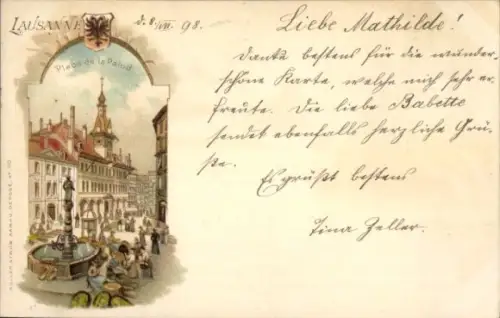 LAUSANNE
d. 8/VII. 98.
Place de la Palud
Liebe Mathilde!
Danke bestens für die wunder-
schöne Karte, welche mich sehr er-
freute. Die liebe Babette
sendet ebenfalls herzliche Grü-
ße.
Es grüßt bestens
Tina Zeller.